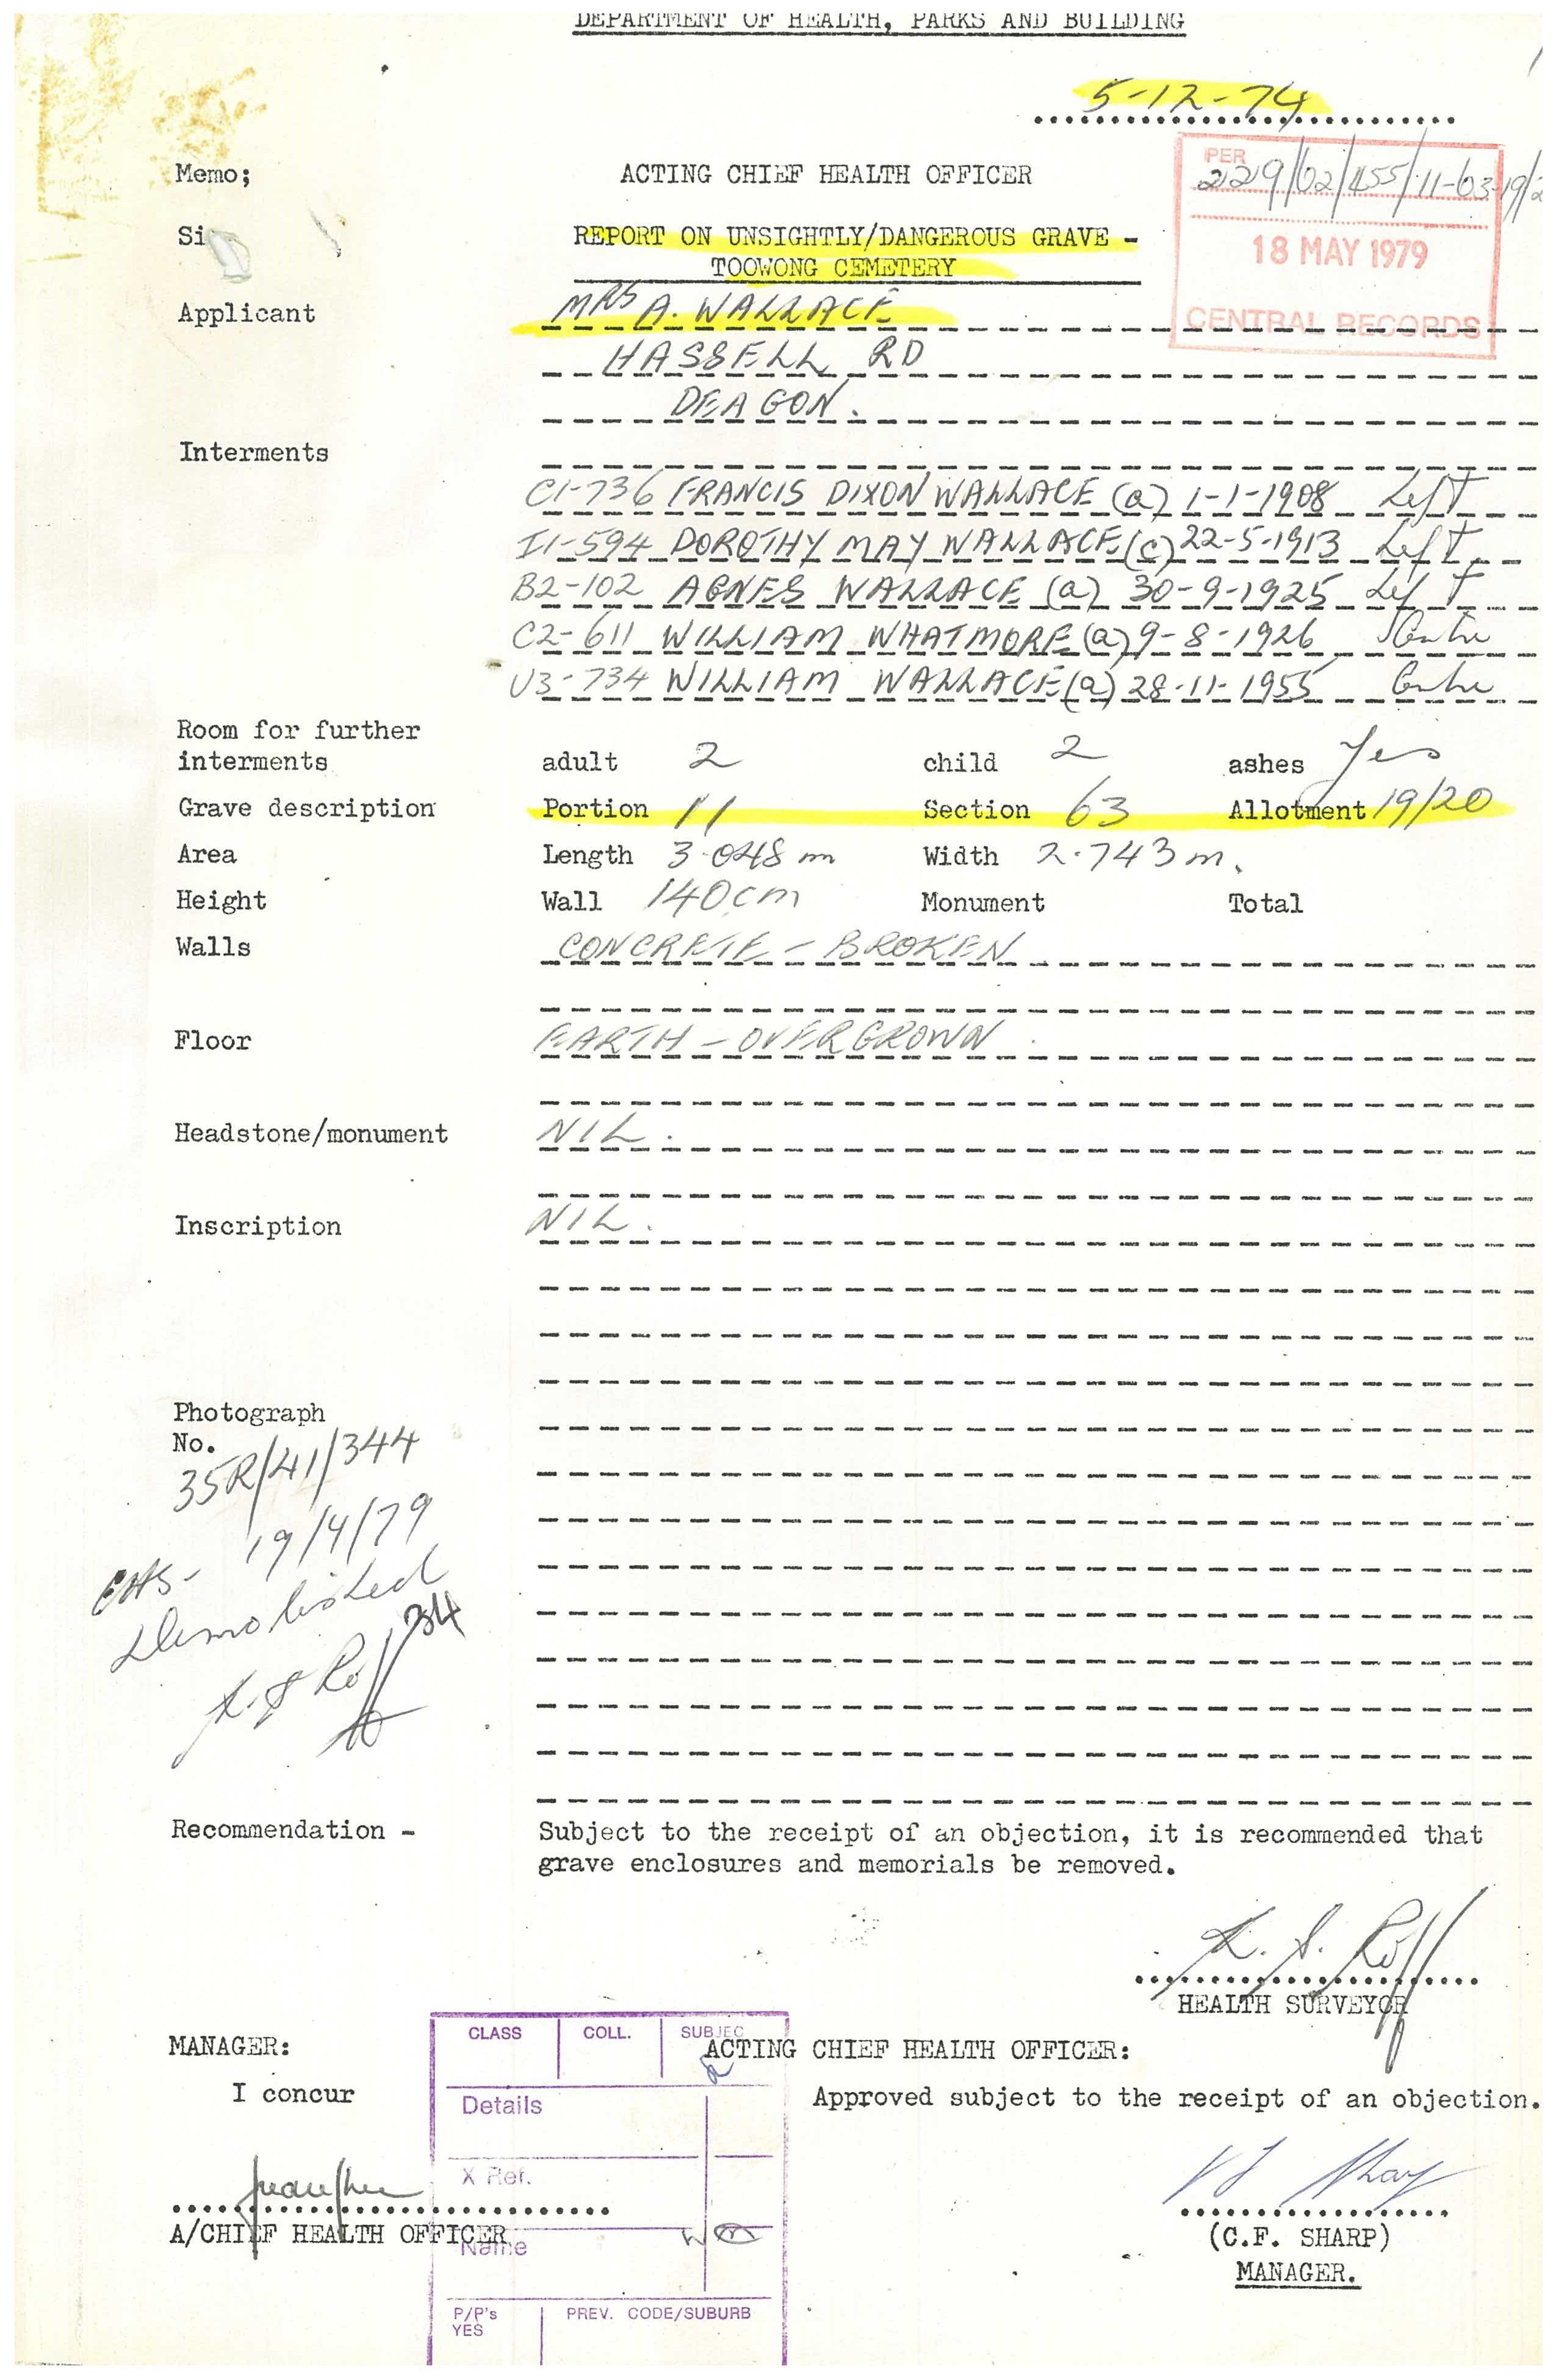 DEPARTMENT OF HEALTH, PARKS AND BUILDING
5-12-74
Memo; ACTING CHIEF HEALTH OFFICER
PER
229/02/455/11-03-19/2
18 MAY 1979
CENTRAL RECORDS
Si
REPORT ON UNSIGHTLY/DANGEROUS GRAVE -
TOOWONG CEMETERY
Applicant MRS A. WALLACE
HASSELL RD
DEAGON.
Interments
C1-736 FRANCIS DIXON WALLACE (a) 1-1-1908 Left
I1-594 DOROTHY MAY WALLACE (c) 22-5-1913 Left
B2-102 AGNES WALLACE (a) 30-9-1925 Left
C2-611 WILLIAM WHATMORE (a) 9-8-1926 Centre
U3-734 WILLIAM WALLACE (a) 28-11-1955 Centre
Room for further
interments adult 2 child 2 ashes Yes
Grave description Portion 11 Section 63 Allotment 19/20
Area Length 3.048 m Width 2.743 m.
Height Wall 140cm Monument Total
Walls CONCRETE - BROKEN
Floor EARTH - OVERGROWN
Headstone/monument NIL.
Inscription NIL.
Photograph
No.
35R/41/344
19/4/79
Demolished
34
Recommendation - Subject to the receipt of an objection, it is recommended that
grave enclosures and memorials be removed.
HEALTH SURVEYOR
MANAGER: ACTING CHIEF HEALTH OFFICER:
I concur Approved subject to the receipt of an objection.
A/CHIEF HEALTH OFFICER
(C.F. SHARP)
MANAGER.
CLASS COLL. SUBJEC
Details
X Ref.
Name
P/P's PREV. CODE/SUBURB
YES